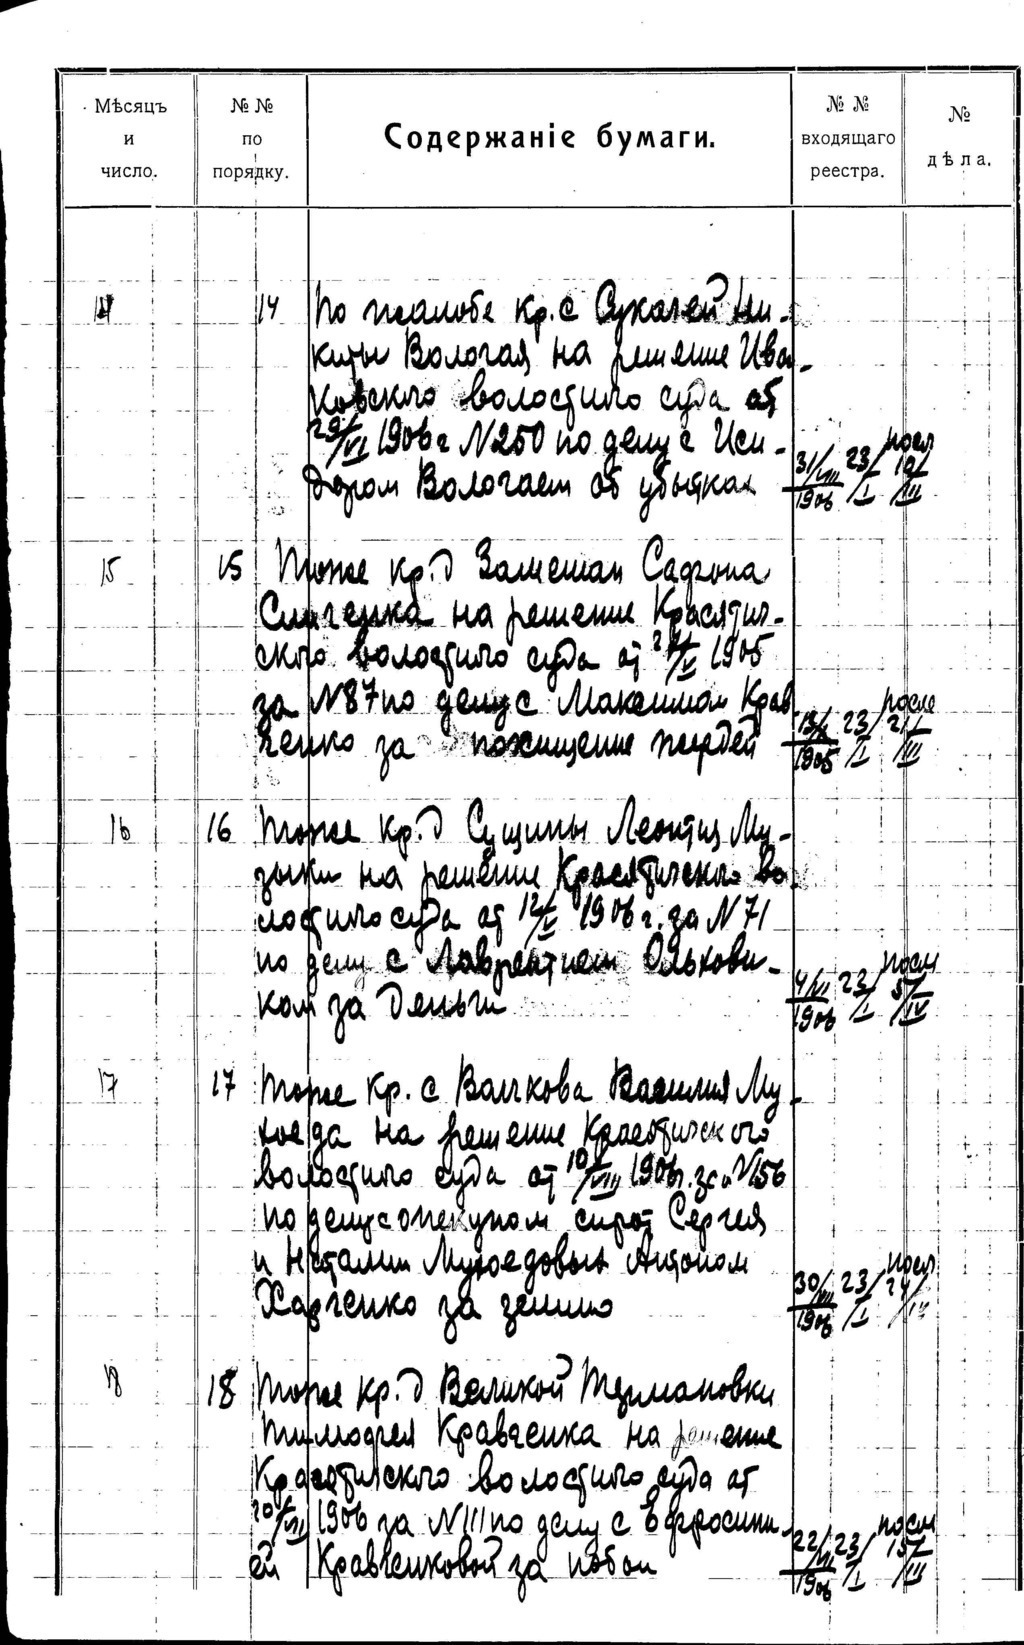 Мѣсяцъ и число.
№№ по порядку.
Содержаніе бумаги.
№ № входящаго реестра.
№ дѣла.
14 По жалобе кр. с Сукачей Ни-
киты Вологая на решение Ива-
ковского волостного суда от
29/VI 1906 г N250 по делу с Иси-
дором Вологаем об убытках
31/VIII 1906 23/I посл 10/III
15 15 Тоже кр. д Замошан Сафрона
на решение Красятич-
ского волостного суда от /V 1905
за N87 по делу с Максимом Крав
ченко за похищение жердей
13/X 1905 23/I после 21/III
16 16 Тоже кр. д Сущаны Леонтия Му-
зыки на решение Красятичского во
лостного суда от 12/V 1906 г. за N71
по делу с Лаврентием Ольхови-
ком за деньги
4/VII 1906 23/I посл 5/IV
17 17 Тоже кр. с Вачкова Василия Му-
хоеда на решение Красятичского
волостного суда от 10/VIII 1906 г. за N156
по делу с опекуном сирот Сергея
и Наталии Мухоедовых Антоном
Харченко за землю
30/VIII 1906 23/I посл 24/
18 18 Тоже кр. д Великой Термаховки
Тимофея Кравченка на решение
Красятичского волостного суда от
20/VII 1906 за N111 по делу с Ефросини-
ей Кравченковой за побои
22/VII 1906 23/I посл 15/III